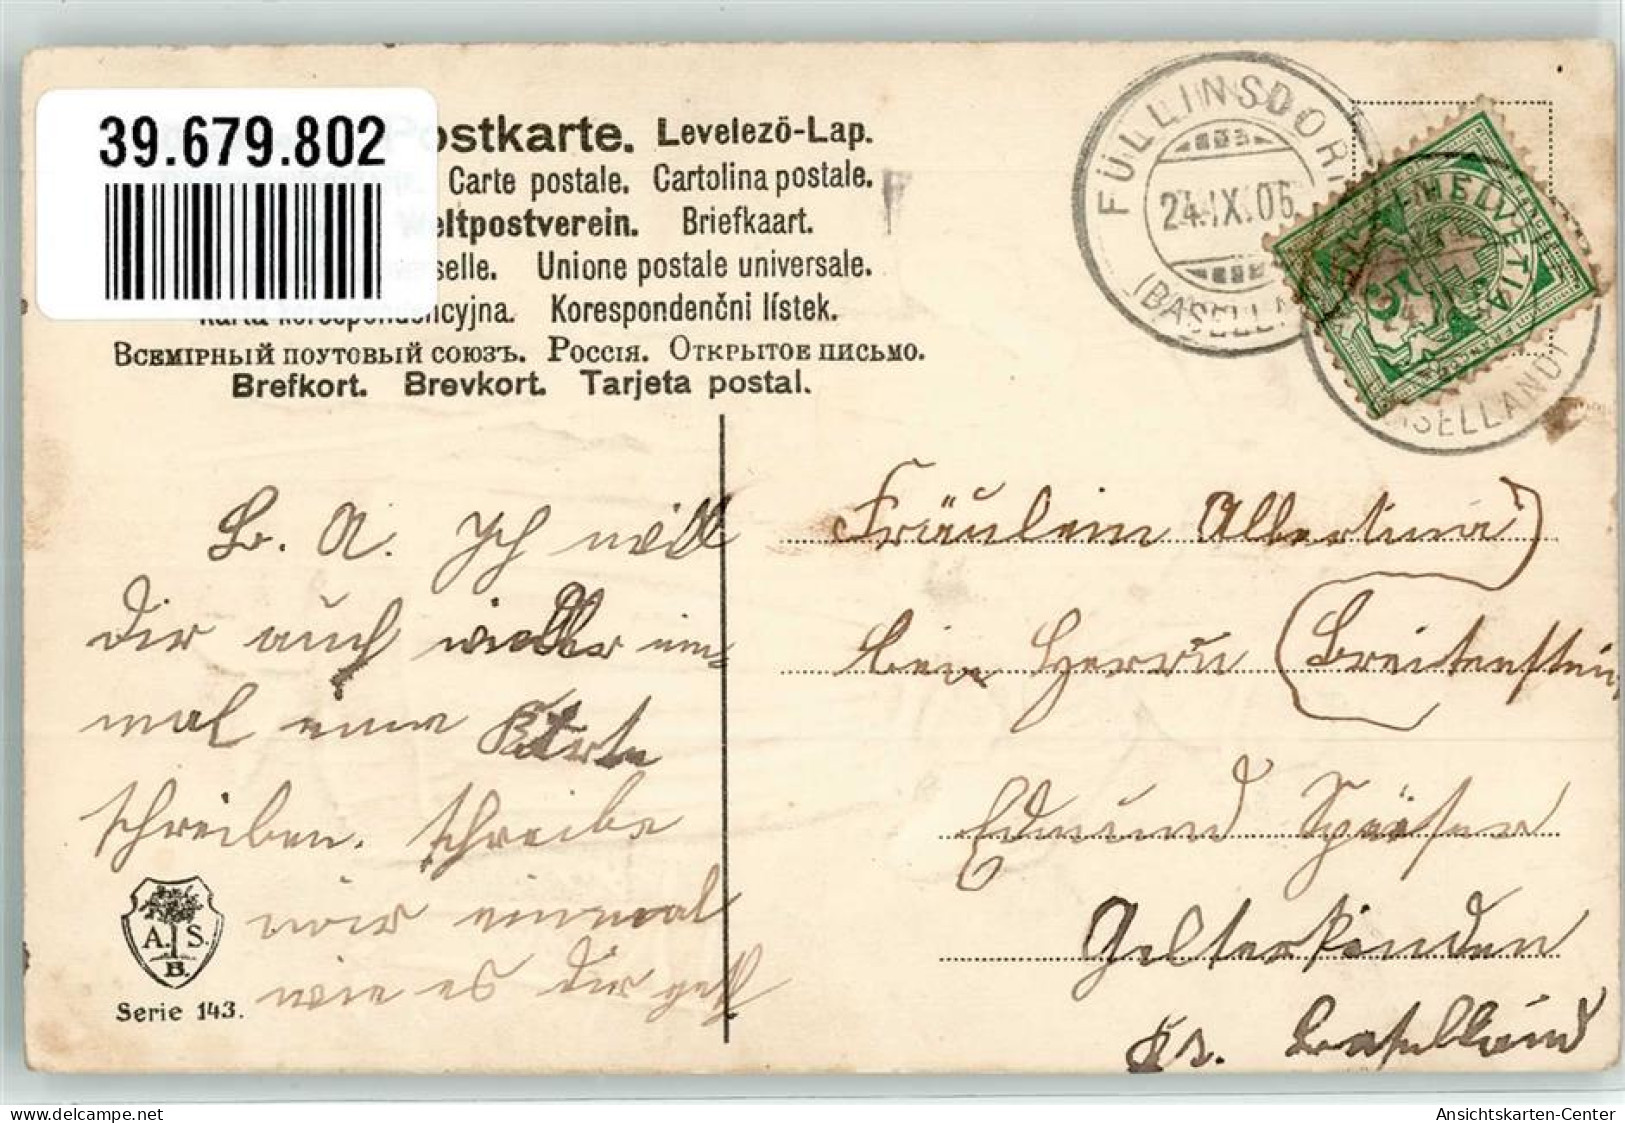 39.679.802
Postkarte. Levelező-Lap.
Carte postale. Cartolina postale.
Weltpostverein. Briefkaart.
selle. Unione postale universale.
Karta korespondencyjna. Korespondenčni lístek.
Всемірный поутовый союзъ. Россія. Открытое письмо.
Brefkort. Brevkort. Tarjeta postal.
FÜLLINSDORF
24.IX.06
(BASELLAND)
HELVETIA
5
FRANCO
(BASELLAND)
L. A. Ich will
Dir auch wieder ein-
mal eine Karte
schreiben. Schreibe
mir einmal
wie es Dir geht
Fräulein Albertina
bei Herrn (Breitenstein
Edmund
Gelterkinden
Baselland
A. S.
B.
Serie 143.
delcampe.net
Ansichtskarten-Center